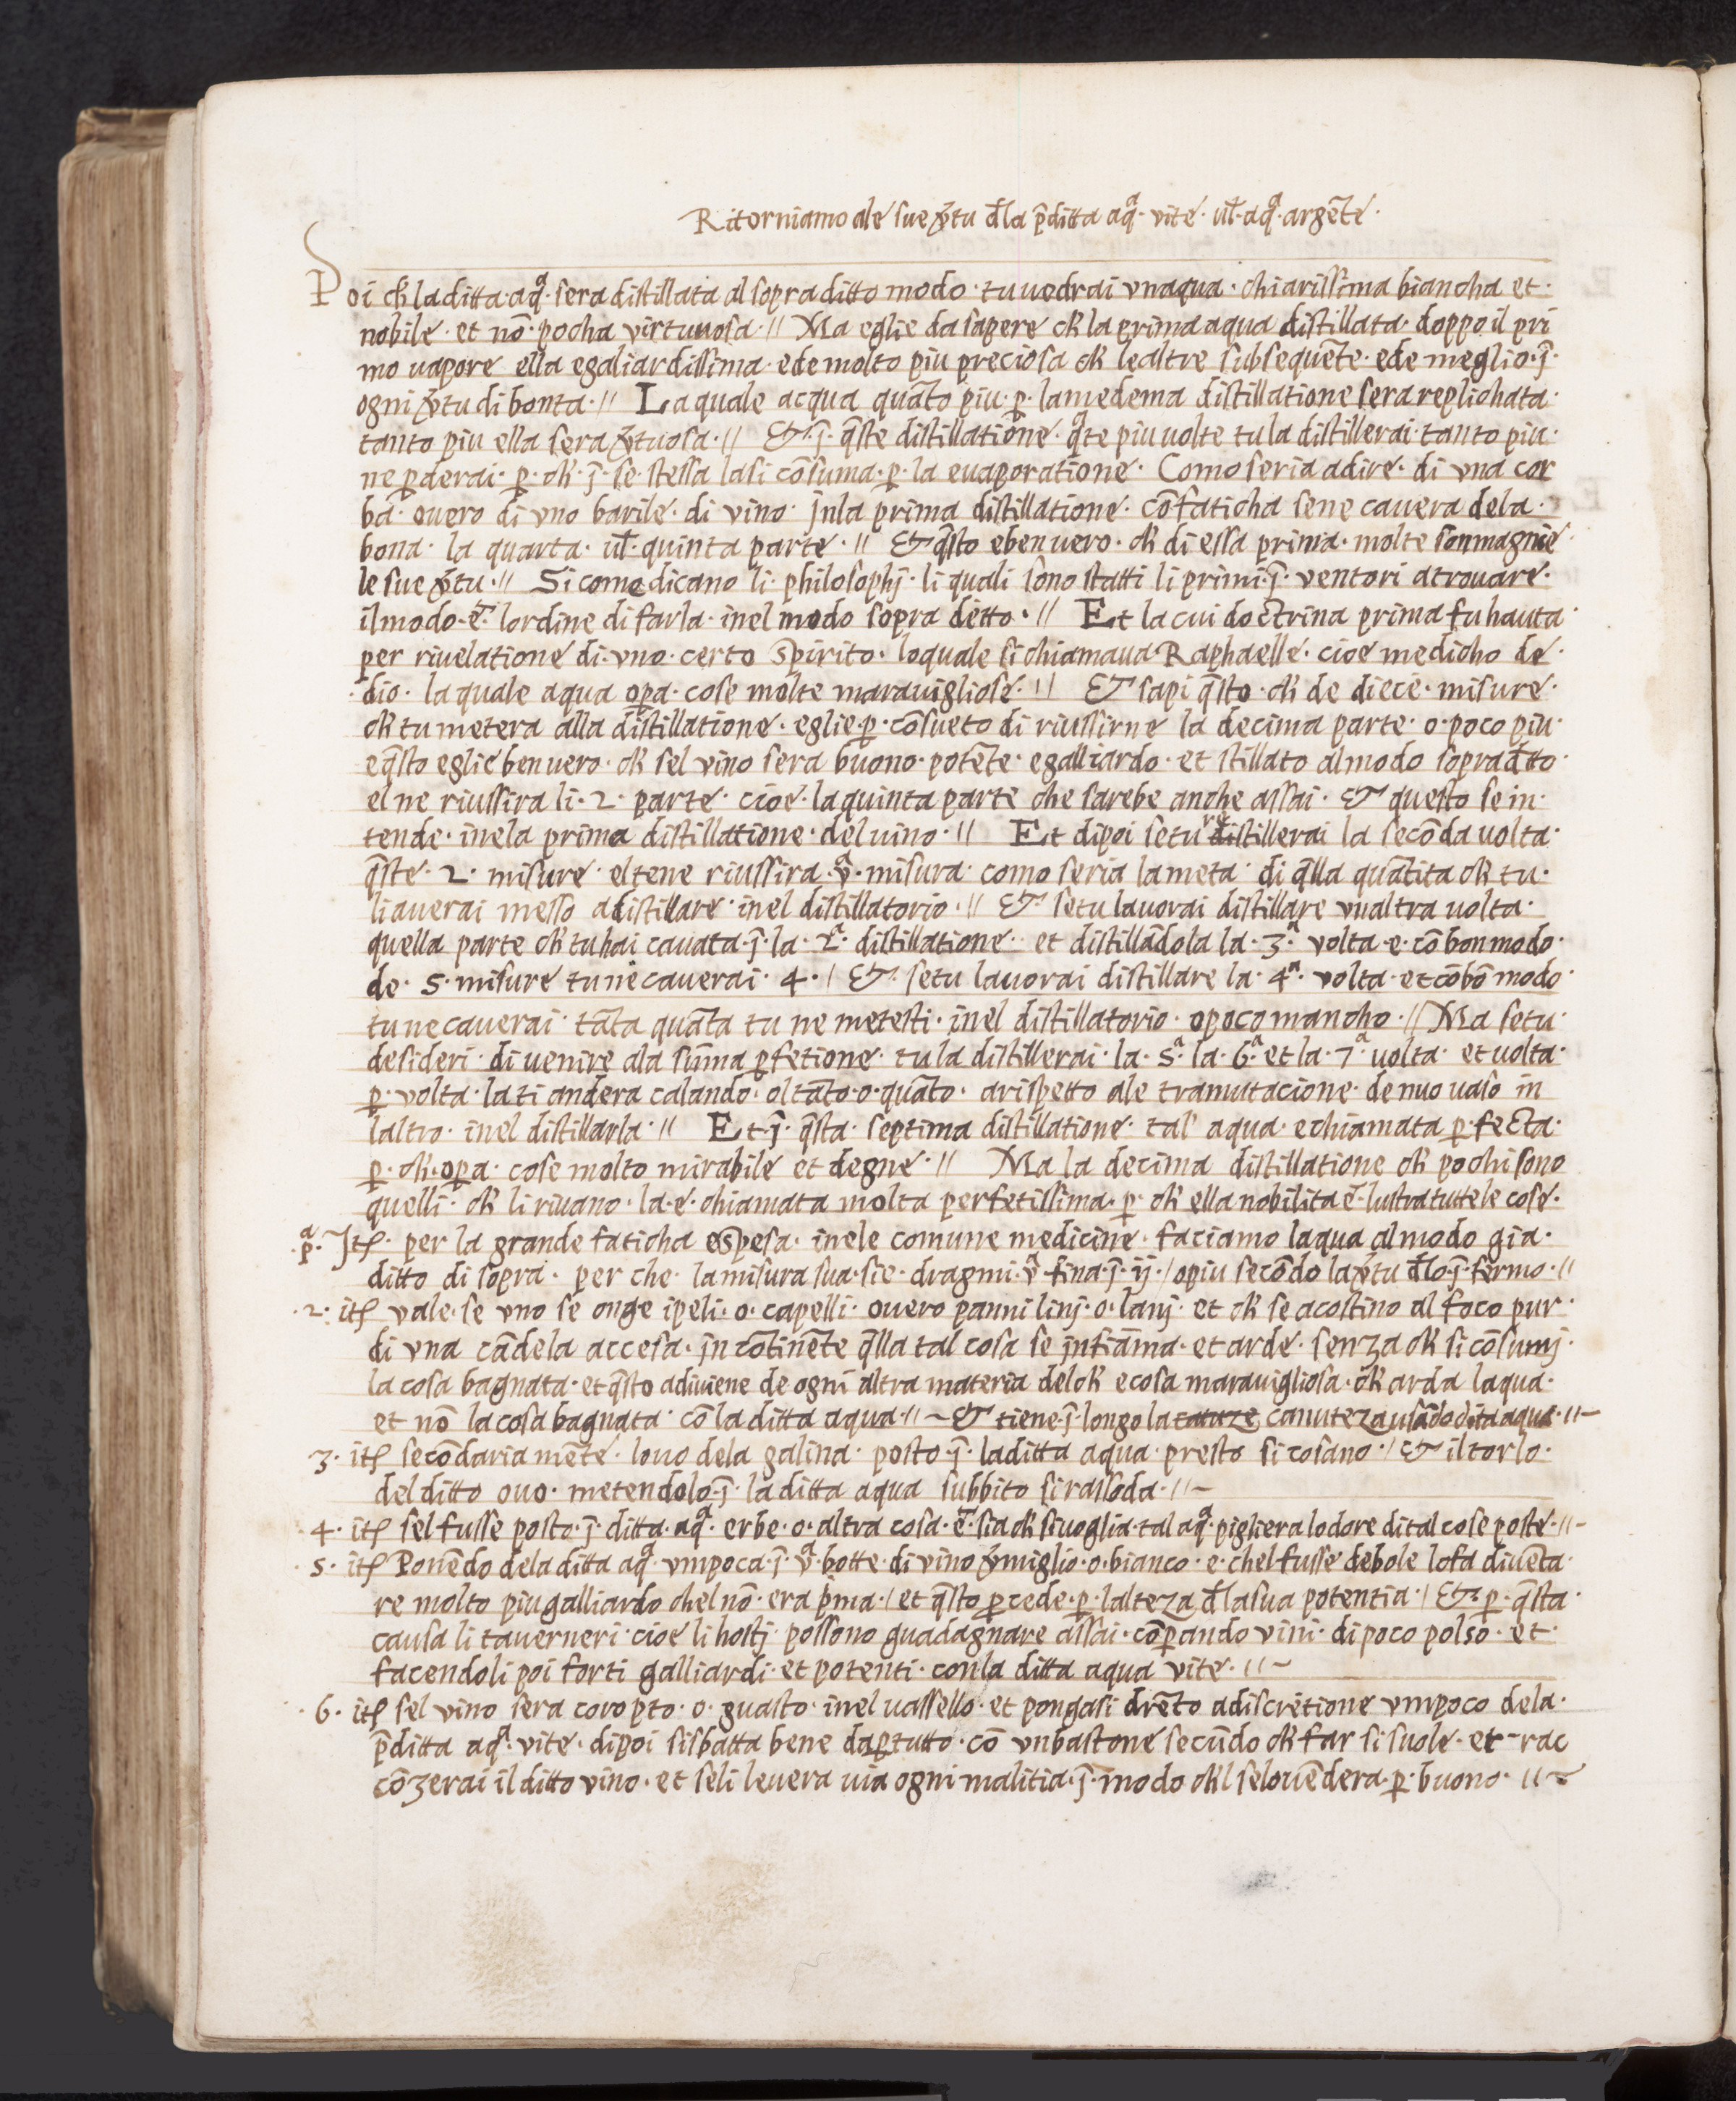 Ritorniamo ale sue v̄tu d̄la p̄ditta aqᵃ· vite· ul̄· aqᵃ· argēte·
Poi ch̄ la ditta· aqᵃ· sera distillata al sopra ditto modo· tu uedrai vnaqua· chiarissima biancha et·
nobile· et nō· pocha virtuuosa· // Ma eglie da sapere ch̄ la prima aqua distillata· doppo il pri
mo uapore ella egaliardissima· ede molto piu preciosa ch̄ lealtre subsequēte· ede meglio· ī·
ogni v̄tu di bonta· // La quale acqua quāto piu· p̱· lamedema distillatione sera replichata·
tanto piu ella sera v̄tuosa· // &· ī· q̄ste distillatione· qᵃte piu uolte tu la distillerai· tanto piu·
ne p̱derai· p̱· ch̄· ī· se stessa lasi cōsuma· p̱· la euaporatione· Como seria adire· di vna cor
ba· ouero di vno barile· di vino· jnla prima distillatione· cōfaticha sene cauera dela·
bona· la quarta· ul̄· quinta parte· // & q̄sto ebenuero· ch̄ di essa prima· molte sonmagnie
le sue v̄tu· // Si como dicano li· philosophj· li quali sono statti li primi· ī· ventori atrouare·
ilmodo· ē· lordine di farla· inel modo sopra ditto· // Et la cui doctrina prima fu hauta·
per riuelatione di· vno· certo spirito· loquale si chiamaua Raphaelle· cioe medicho de·
dio· la quale aqua op̱a· cose molte marauigliose· // & sapi q̄sto· ch̄ de diece· misure·
ch̄ tu metera alla distillatione· eglie p̱· cōsueto di riussirne la decima parte· o· poco piu·
eq̄sto eglie benuero· ch̄ sel vino sera buono· potēte· egalliardo· et stillato almodo soprad̄tto·
el ne riussira li· 2· parte· cioe· laquinta parte che sarebe anche assai· & questo se in·
tende· inela prima distillatione· deluino· // Et dipoi setu ri distillerai la secōda uolta·
q̄ste· 2· misure· eltene riussira· vᵃ· misura· como seria lameta· di q̄lla quātita ch̄ tu·
li auerai messo adistillare· inel distillatorio· // & setu lauorai distillare vnaltra uolta·
quella parte ch̄ tu hai cauata· ī· la· 2ᵃ· distillatione· et distillādola la· 3·ᵃ volta· e· cō bon modo·
de· 5· misure tu ne cauerai· 4· / & setu lauorai distillare la· 4ᵃ· volta· et cō bō modo·
tu ne cauerai· tāta quāta tu ne metesti· inel distillatorio· opoco mancho· // Ma setu·
desideri· di uenire ala sūma p̱fetione· tu la distillerai· la· 5·ᵃ la· 6·ᵃ et la· 7·ᵃ uolta· et uolta·
p̱· volta· la ti andera calando· ol tāto· o· quāto· arispetto ale tramutacione· de nuo uaso in
laltro· inel distillarla· // Et· ī· q̄sta· septima distillatione· tal aqua· echiamata p̱·fecta·
p̱· ch̄· op̱a· cose molto mirabile et degne· // Ma la decima distillatione ch̄ pochi sono
quelli· ch̄ li riuano· la· e· chiamata molta perfetissima· p̱· ch̄ ella nobilita ē· lustra tutte le cose·
·pᵃ· Itꝭ· per la grande faticha espesa· inele comune medicine· faciamo laqua al modo gia·
ditto di sopra· per che· la misura sua· sie· dragmi· vᵃ fina· ī· ij· / opiu secōdo la v̄tu d̄lo· ī·fermo· //
·2· itꝭ vale· se vno se onge ipeli· o· capelli· ouero panni linj· o· lanj· et ch̄ se acostino al foco pur·
di vna cādela accesa· jn cōtinēte q̄lla tal cosa se jnfiama· et arde· senza ch̄ si cōsumj·
la cosa bagnata· et q̄sto adiuiene de ogni altra materia delch̄ ecosa marauigliosa· ch̄ arda laqua·
et nō la cosa bagnata· cō la ditta aqua· // ~ & tiene· ī· longo la canuteza usādo dita aqua· // ~
3· itꝭ secōdaria mēte· louo dela galina· posto· ī· laditta aqua· presto si cosano· / & il torlo·
del ditto ouo· metendolo· ī· la ditta aqua subbito si rassoda· // ~
·4· itꝭ sel fusse posto· ī· ditta· aqᵃ· erbe· o· altra cosa· ē· sia ch̄ si uoglia· tal aqᵃ· pigliera lodore di tal cose poste· // ~
·5· itꝭ Ponēdo dela ditta aqᵃ· vmpoca· ī· vᵃ· botte· di vino v̄miglio· o· bianco· e· chel fusse debole lo fa diuēta·
re molto piu galliardo chel nō· era p̍ma· / et q̄sto p̱cede· p̱· lalteza d̄la sua potentia· / &· p̱· q̄sta·
causa li tauerneri· cioe li hostj· possono guadagnare assai· cōp̱ando vini· di poco polso· et·
facendoli poi forti galliardi· et potenti· conla ditta aqua vite· // ~
·6· itꝭ sel vino sera coropto· o· guasto· inel uassello· et pongasi drēto adiscretione vmpoco dela·
p̄ditta aqᵃ· vite· dipoi sisbatta bene dap̱tutto· cō vnbastone secūdo ch̄ far si suole· et rac
cōzerai il ditto vino· et seli leuera uia ogni malitia· ī· modo ch̄l selouēdera· p̱· buono· // ~